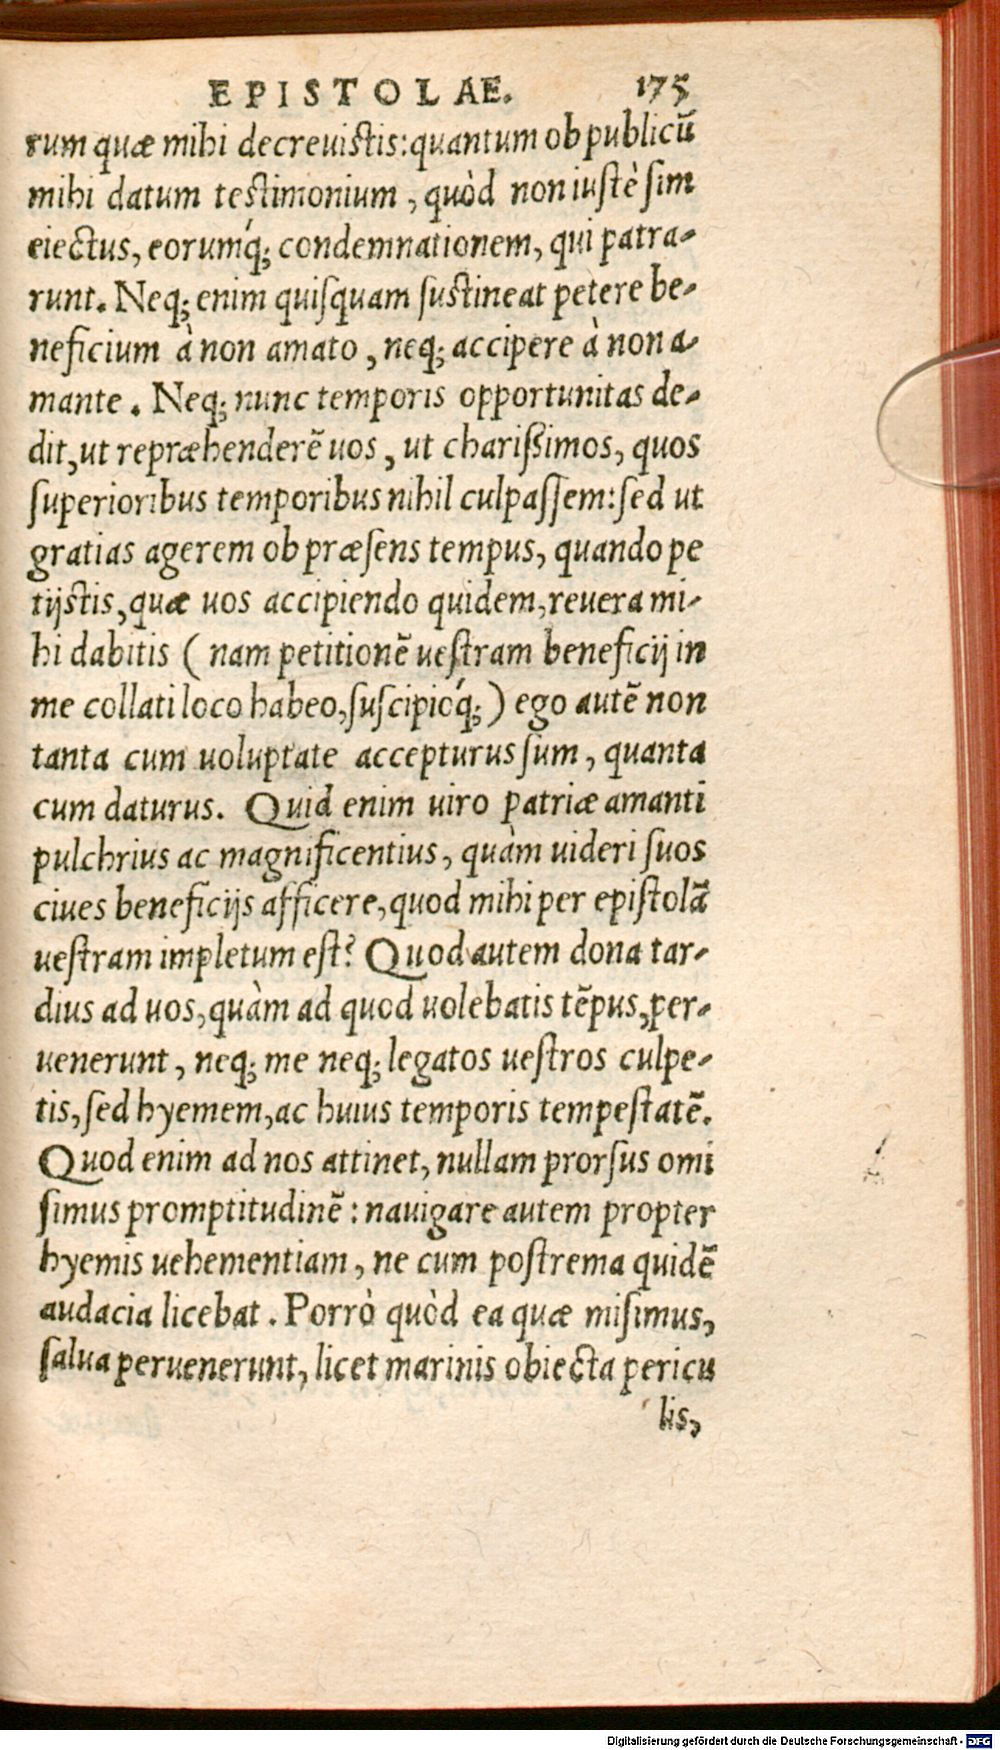 EPISTOLAE. 175
rum quæ mihi decreuistis: quantum ob publicū
mihi datum testimonium, quòd non iustè sim
eiectus, eorumq́; condemnationem, qui patra-
runt. Neq; enim quisquam sustineat petere be-
neficium à non amato, neq; accipere à non a-
mante. Neq; nunc temporis opportunitas de-
dit, ut repræhenderē uos, ut charissimos, quos
superioribus temporibus nihil culpassem: sed ut
gratias agerem ob præsens tempus, quando pe
tijstis, quæ uos accipiendo quidem, reuera mi-
hi dabitis ( nam petitionē uestram beneficij in
me collati loco habeo, suscipioq́; ) ego autē non
tanta cum uoluptate accepturus sum, quanta
cum daturus. Quid enim uiro patriæ amanti
pulchrius ac magnificentius, quàm uideri suos
ciues beneficijs afficere, quod mihi per epistolā
uestram impletum est? Quod autem dona tar-
dius ad uos, quàm ad quod uolebatis tēpus, per-
uenerunt, neq; me neq; legatos uestros culpe-
tis, sed hyemem, ac huius temporis tempestatē.
Quod enim ad nos attinet, nullam prorsus omi
simus promptitudinē: nauigare autem propter
hyemis uehementiam, ne cum postrema quidē
audacia licebat. Porrò quòd ea quæ misimus,
salua peruenerunt, licet marinis obiecta pericu
lis,
Digitalisierung gefördert durch die Deutsche Forschungsgemeinschaft - DFG